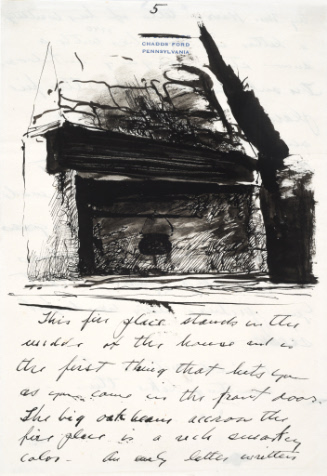 5
CHADDS FORD
PENNSYLVANIA
This fire place stands in the
middle of the house and is
the first thing that hits you
as you come in the front door.
The big oak beam across the
fire place is a rich smokey
color. An early letter written